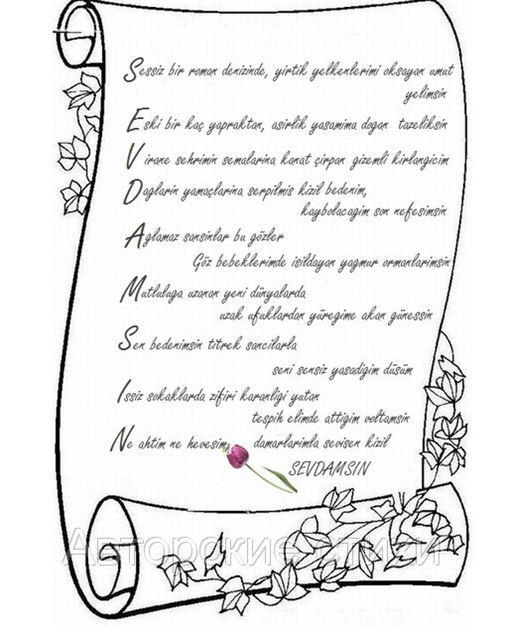 Sessiz bir roman denizinde, yirtik yelkenlerimi oksayan umut
yelimsin
Eski bir kaç yapraktan, asirlik yasamima dogan tazeliksin
Virane sehrimin semalarina kanat çirpan gizemli kirlangicim
Daglarin yamaçlarina serpilmis kizil bedenim,
kaybolacagim son nefesimsin
Aglamaz sansinlar bu gözler
Göz bebeklerimde isildayan yagmur ormanlarimsin
Mutluluga uzanan yeni dünyalarda
uzak ufuklardan yüregime akan günessin
Sen bedenimsin titrek sancilarla
seni sensiz yasadigim düsüm
Issiz sokaklarda zifiri karanligi yutan
tespih elimde attigim voltamsin
Ne ahtim ne hevesim, damarlarimla sevisen kizil
SEVDAMSIN
Авторские стихи